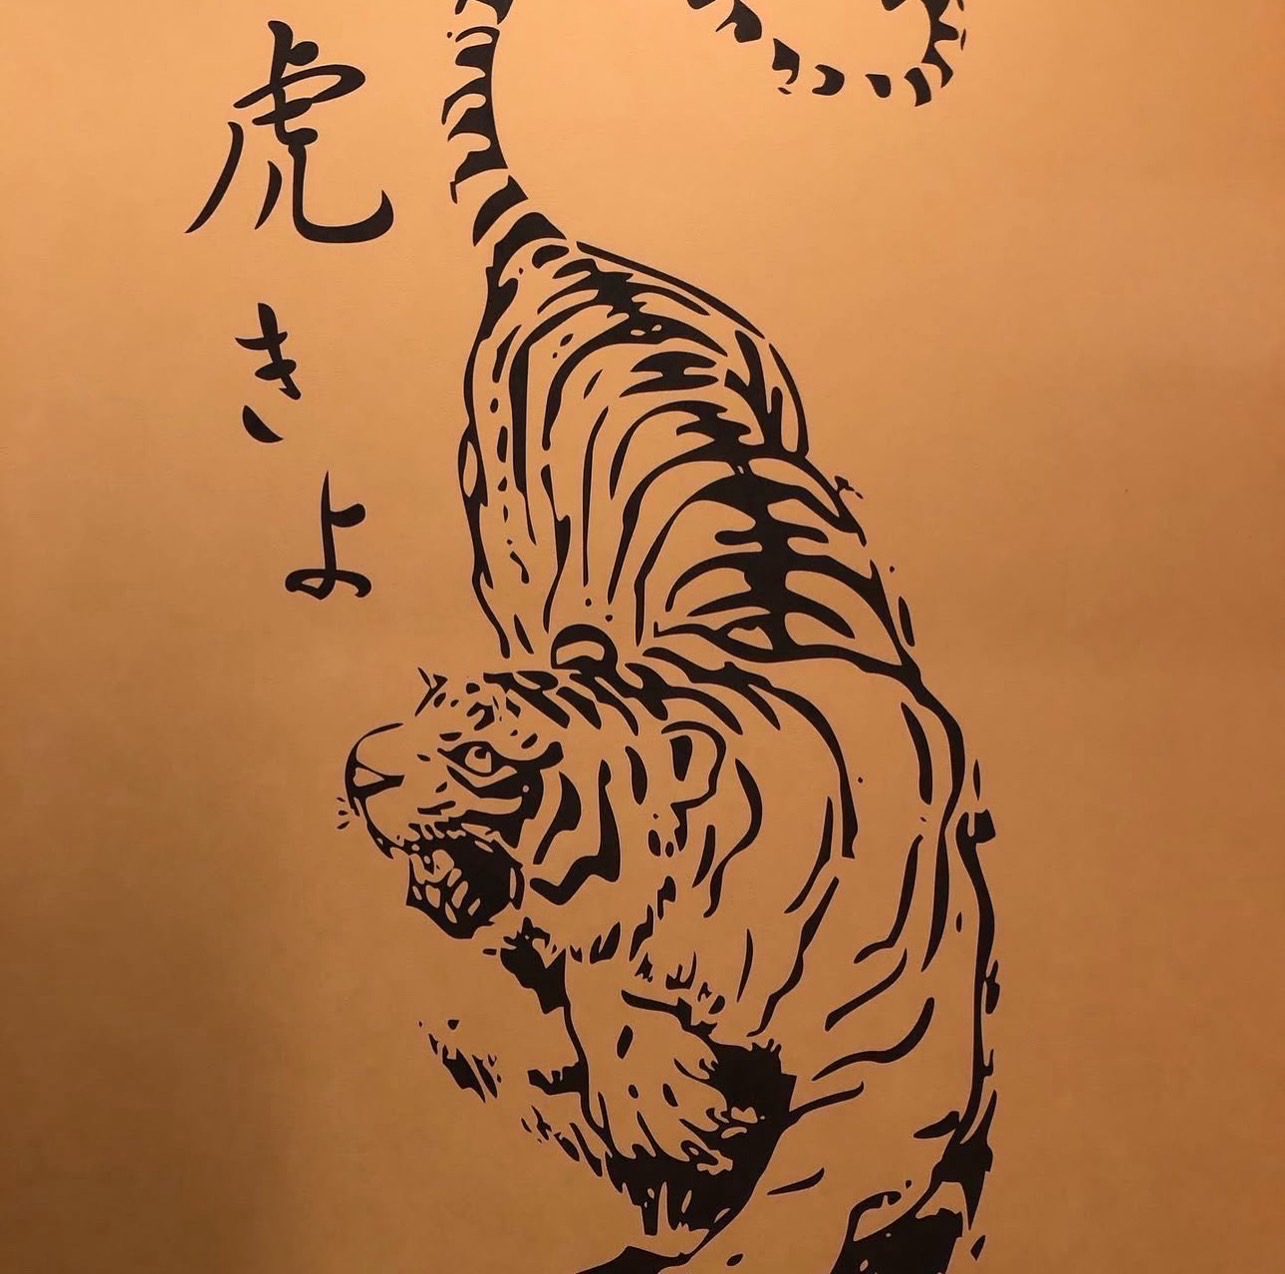 虎きよ